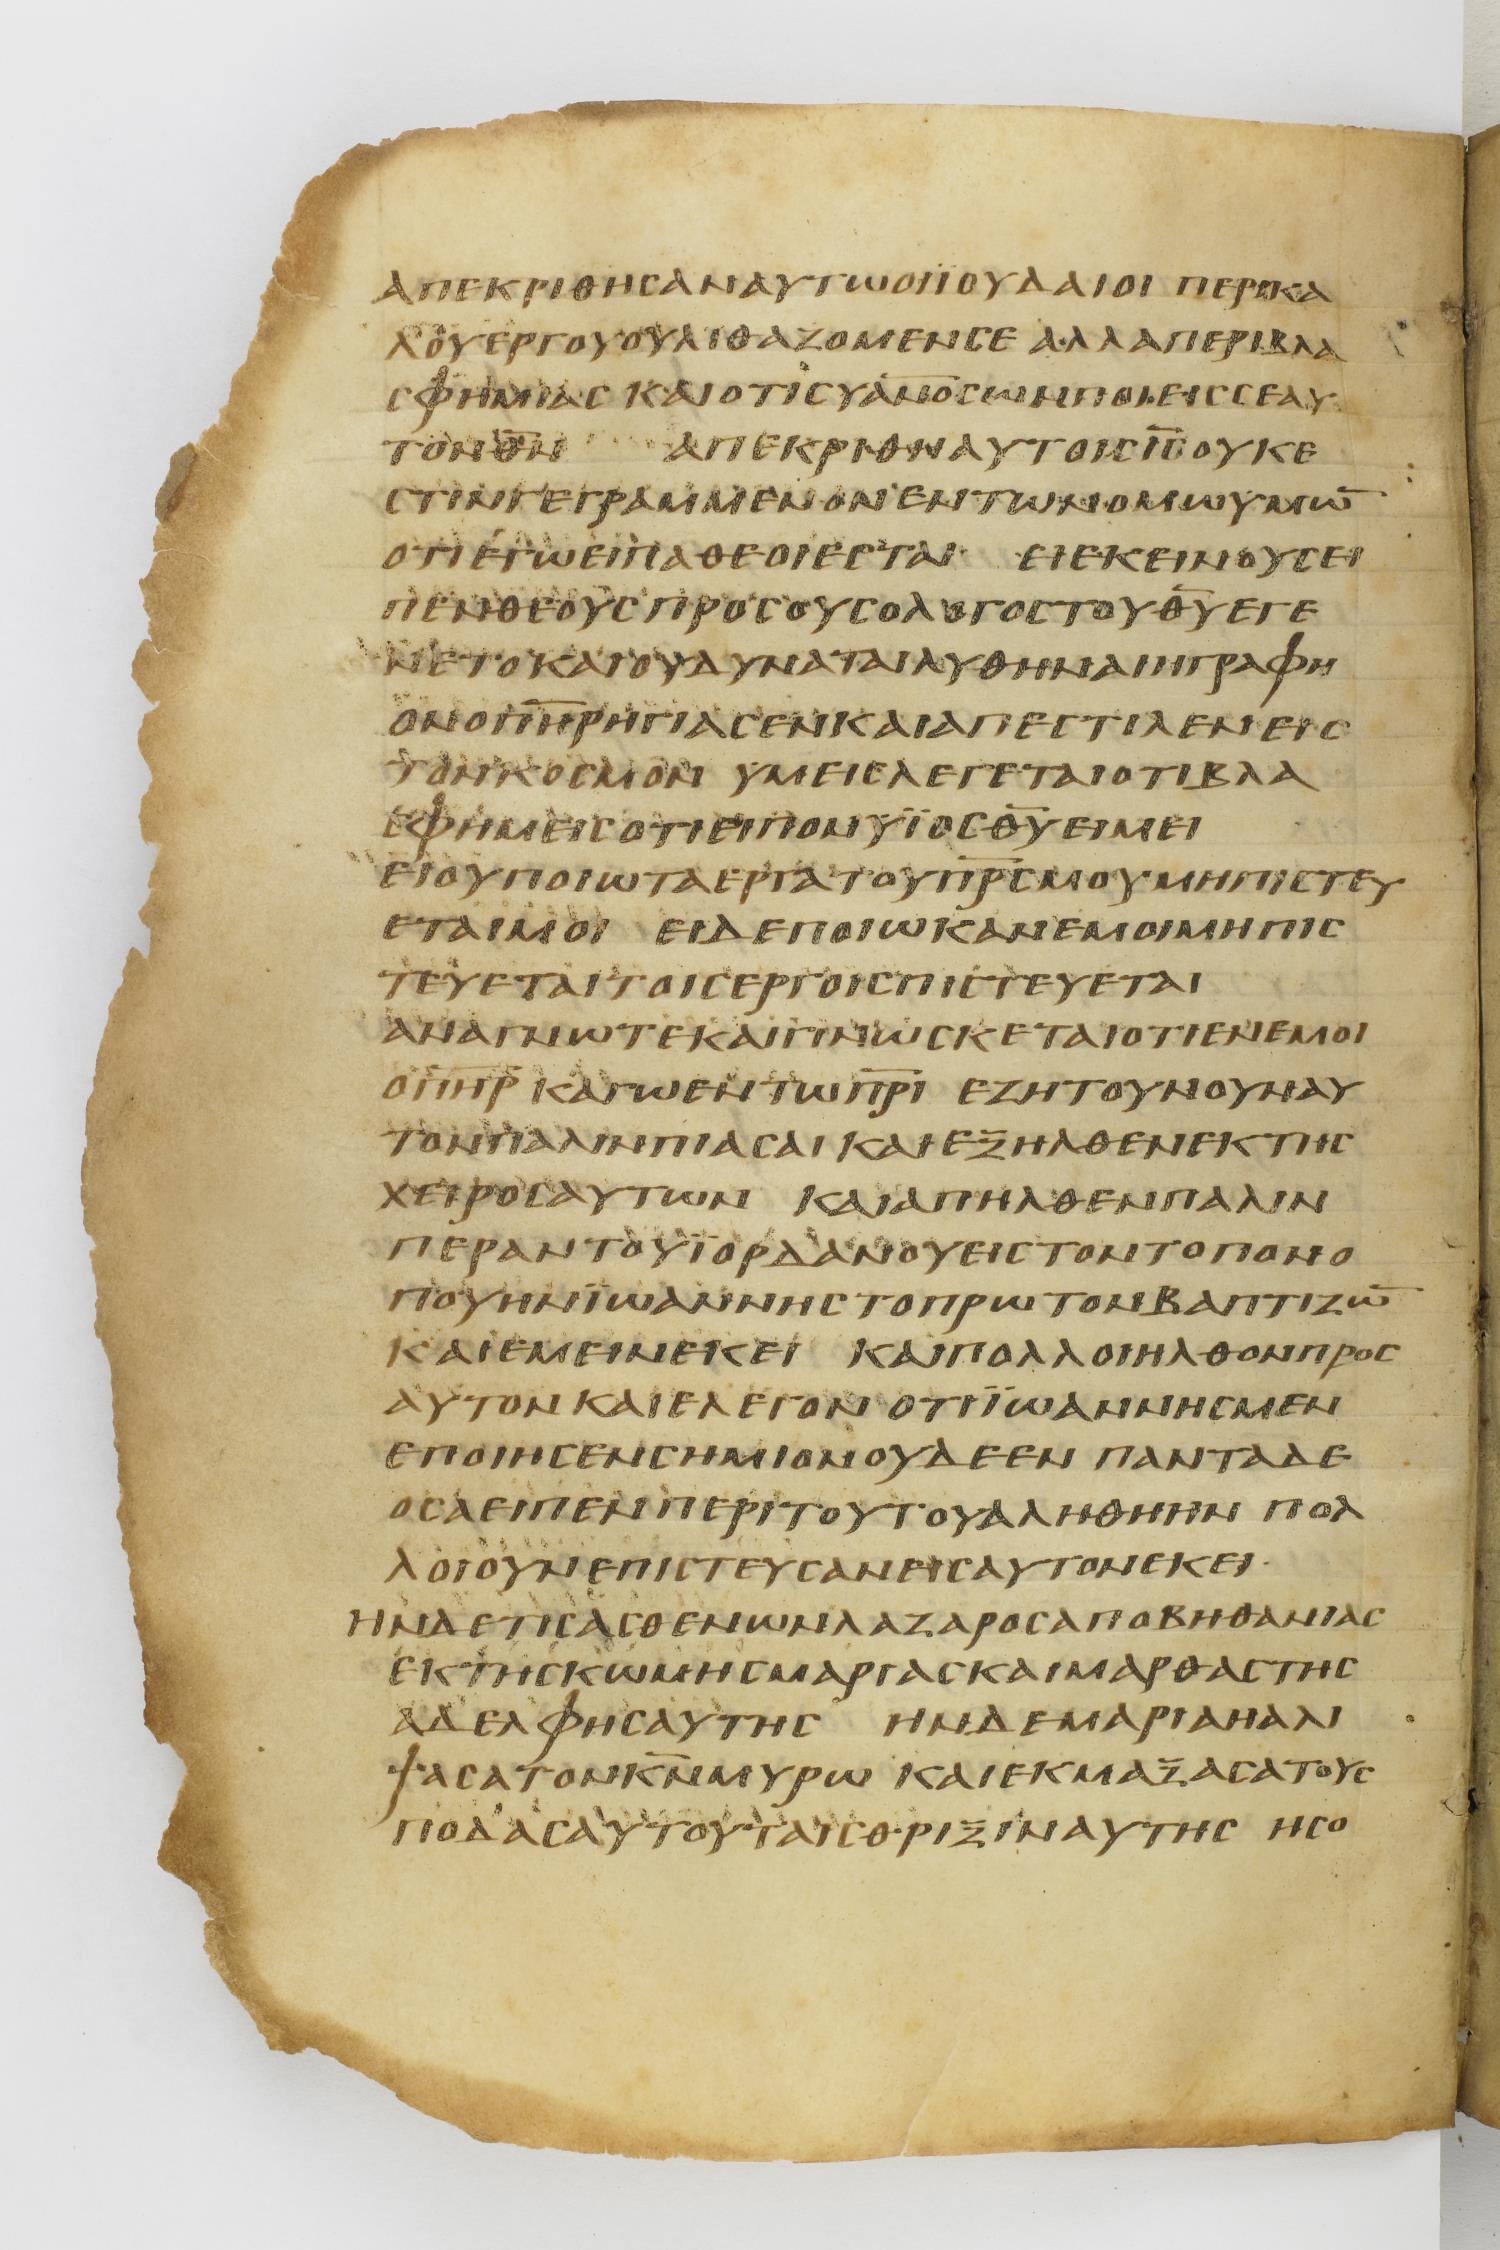 ΑΠΕΚΡΙΘΗСΑΝΑΥΤΩΟΙΪΟΥΔΑΙΟΙ ΠΕΡΙΚΑ
ΛΟΥΕΡΓΟΥΟΥΛΙΘΑΖΟΜΕΝСΕ ΑΛΛΑΠΕΡΙΒΛΑ
СΦΗΜΙΑС ΚΑΙΟΤΙСΥΑ̅Ν̅Ο̅СΩΝΠΟΙΕΙССΕΑΥ
ΤΟΝΘ̅Ν̅ ΑΠΕΚΡΙΘΗΑΥΤΟΙСΙ̅С̅ΟΥΚΕ
СΤΙΝΓΕΓΡΑΜΜΕΝΟΝΕΝΤΩΝΟΜΩΥΜΩ̅
ΟΤΙΕΓΩΕΙΠΑΘΕΟΙΕСΤΑΙ ΕΙΕΚΕΙΝΟΥСΕΙ
ΠΕΝΘΕΟΥСΠΡΟСΟΥСΟΛΟΓΟСΤΟΥΘ̅Υ̅ΕΓΕ
ΝΕΤΟΚΑΙΟΥΔΥΝΑΤΑΙΛΥΘΗΝΑΙΗΓΡΑΦΗ
ΟΝΟΠ̅Η̅Ρ̅ΗΓΙΑСΕΝΚΑΙΑΠΕСΤΙΛΕΝΕΙС
ΤΟΝΚΟСΜΟΝ ΥΜΕΙСΛΕΓΕΤΑΙΟΤΙΒΛΑ
СΦΗΜΕΙСΟΤΙΕΙΠΟΝΥΪΟСΘ̅Υ̅ΕΙΜΕΙ
ΕΙΟΥΠΟΙΩΤΑΕΡΓΑΤΟΥΠ̅Ρ̅С̅ΜΟΥΜΗΠΙСΤΕΥ
ΕΤΑΙΜΟΙ ΕΙΔΕΠΟΙΩΚΑΝΕΜΟΙΜΗΠΙС
ΤΕΥΕΤΑΙΤΟΙСΕΡΓΟΙСΠΙСΤΕΥΕΤΑΙ
ΑΝΑΓΝΩΤΕΚΑΙΓΙΝΩСΚΕΤΑΙΟΤΙΕΝΕΜΟΙ
ΟΠ̅Η̅Ρ̅ ΚΑΓΩΕΝΤΩΠ̅Ρ̅Ι̅ ΕΖΗΤΟΥΝΟΥΝΑΥ
ΤΟΝΠΑΛΙΝΠΙΑСΑΙ ΚΑΙΕΞΗΛΘΕΝΕΚΤΗС
ΧΕΙΡΟСΑΥΤΩΝ ΚΑΙΑΠΗΛΘΕΝΠΑΛΙΝ
ΠΕΡΑΝΤΟΥΪΟΡΔΑΝΟΥΕΙСΤΟΝΤΟΠΟΝΟ
ΠΟΥΗΝΪΩΑΝΝΗСΤΟΠΡΩΤΟΝΒΑΠΤΙΖΩ̅
ΚΑΙΕΜΕΙΝΕΚΕΙ ΚΑΙΠΟΛΛΟΙΗΛΘΟΝΠΡΟС
ΑΥΤΟΝΚΑΙΕΛΕΓΟΝ ΟΤΙΪΩΑΝΝΗСΜΕΝ
ΕΠΟΙΗСΕΝСΗΜΙΟΝΟΥΔΕΕΝ ΠΑΝΤΑΔΕ
ΟСΑΕΙΠΕΝΠΕΡΙΤΟΥΤΟΥΑΛΗΘΗΗΝ ΠΟΛ
ΛΟΙΟΥΝΕΠΙСΤΕΥСΑΝΕΙСΑΥΤΟΝΕΚΕΙ·
ΗΝΔΕΤΙСΑСΘΕΝΩΝΛΑΖΑΡΟСΑΠΟΒΗΘΑΝΙΑС
ΕΚΤΗСΚΩΜΗСΜΑΡΙΑСΚΑΙΜΑΡΘΑСΤΗС
ΑΔΕΛΦΗСΑΥΤΗС ΗΝΔΕΜΑΡΙΑΗΑΛΙ
ΨΑСΑΤΟΝΚ̅Ν̅ΜΥΡΩ ΚΑΙΕΚΜΑΞΑСΑΤΟΥС
ΠΟΔΑСΑΥΤΟΥΤΑΙСΘΡΙΞΙΝΑΥΤΗС ΗСΟ